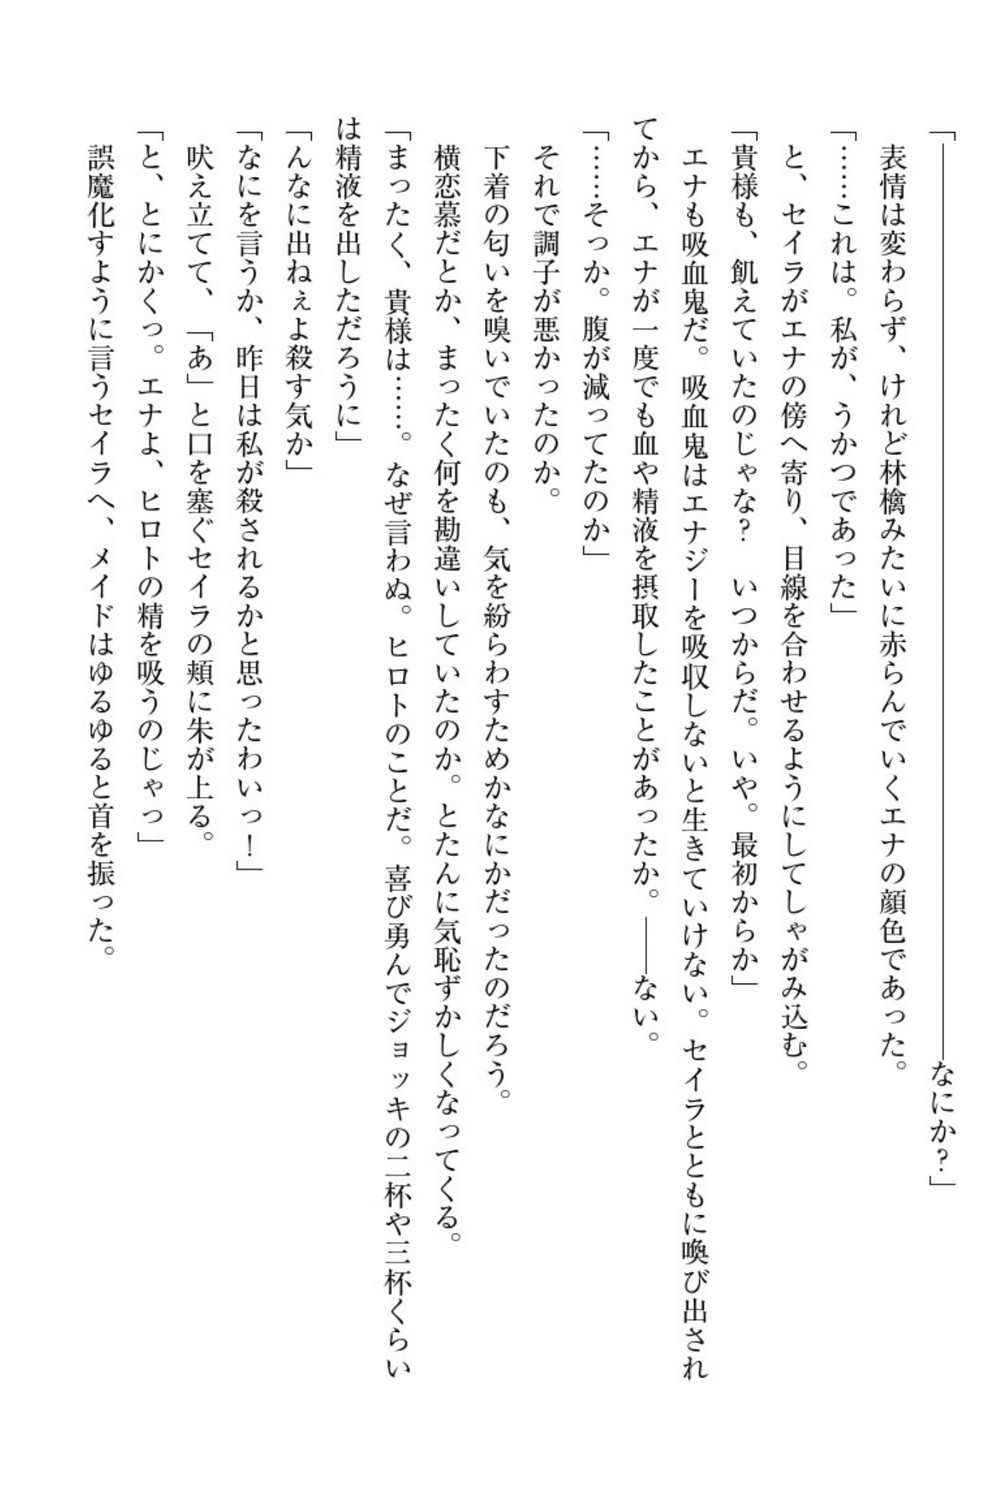 「――――――――――――――――――――――――――――――――なにか？」
　表情は変わらず、けれど林檎みたいに赤らんでいくエナの顔色であった。
「……これは。私が、うかつであった」
　と、セイラがエナの傍へ寄り、目線を合わせるようにしてしゃがみ込む。
「貴様も、飢えていたのじゃな？　いつからだ。いや。最初からか」
　エナも吸血鬼だ。吸血鬼はエナジーを吸収しないと生きていけない。セイラとともに喚び出され
てから、エナが一度でも血や精液を摂取したことがあったか。――ない。
「……そっか。腹が減ってたのか」
　それで調子が悪かったのか。
　下着の匂いを嗅いでいたのも、気を紛らわすためかなにかだったのだろう。
　横恋慕だとか、まったく何を勘違いしていたのか。とたんに気恥ずかしくなってくる。
「まったく、貴様は……。なぜ言わぬ。ヒロトのことだ。喜び勇んでジョッキの二杯や三杯くらい
は精液を出しただろうに」
「んなに出ねぇよ殺す気か」
「なにを言うか、昨日は私が殺されるかと思ったわいっ！」
　吠え立てて、「あ」と口を塞ぐセイラの頬に朱が上る。
「と、とにかくっ。エナよ、ヒロトの精を吸うのじゃっ」
　誤魔化すように言うセイラへ、メイドはゆるゆると首を振った。